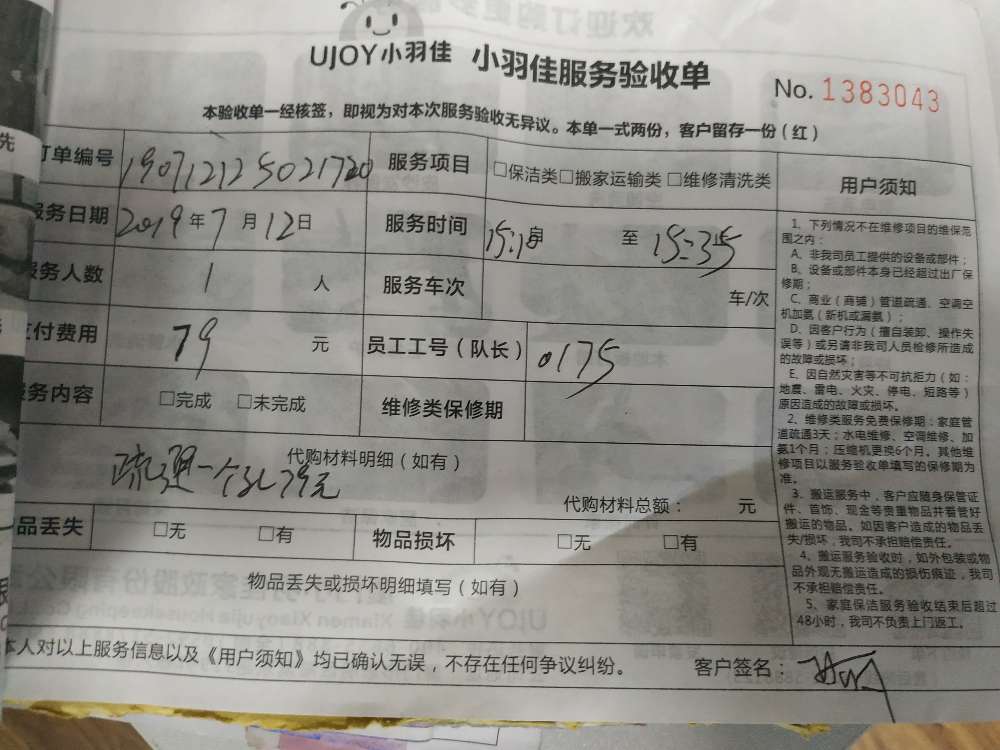 UJOY小羽佳 小羽佳服务验收单
No. 1383043
本验收单一经核签，即视为对本次服务验收无异议。本单一式两份，客户留存一份（红）
订单编号 190712125021720 服务项目 □保洁类□搬家运输类 □维修清洗类
服务日期 2019年7月12日 服务时间 至 15:35
服务人数 1 人 服务车次 车/次
支付费用 79 元 员工工号（队长） 0175
服务内容 □完成 □未完成 维修类保修期
代购材料明细（如有）
疏通一个 79元
代购材料总额： 元
物品丢失 □无 □有 物品损坏 □无 □有
物品丢失或损坏明细填写（如有）
本人对以上服务信息以及《用户须知》均已确认无误，不存在任何争议纠纷。 客户签名：
用户须知
1、下列情况不在维修项目的维保范
围之内：
A、非我司员工提供的设备或部件；
B、设备或部件本身已经超过出厂保
修期；
C、商业（商铺）管道疏通、空调空
机加氨（新机或漏氨）；
D、因客户行为（擅自装卸、操作失
误等）或另请非我司人员检修所造成
的故障或损坏；
E、因自然灾害等不可抗拒力（如：
地震、雷电、火灾、停电、短路等）
原因造成的故障或损坏。
2、维修类服务免费保修期：家庭管
道疏通3天；水电维修、空调维修、加
氨1个月；压缩机更换6个月。其他维
修项目以服务验收单填写的保修期为
准。
3、搬运服务中，客户应随身保管证
件、首饰、现金等贵重物品并看管好
搬运的物品。如因客户造成的物品丢
失/损坏，我司不承担赔偿责任。
4、搬运服务验收时，如外包装或物
品外观无搬运造成的损伤痕迹，我司
不承担赔偿责任。
5、家庭保洁服务验收结束后超过
48小时，我司不负责上门返工。